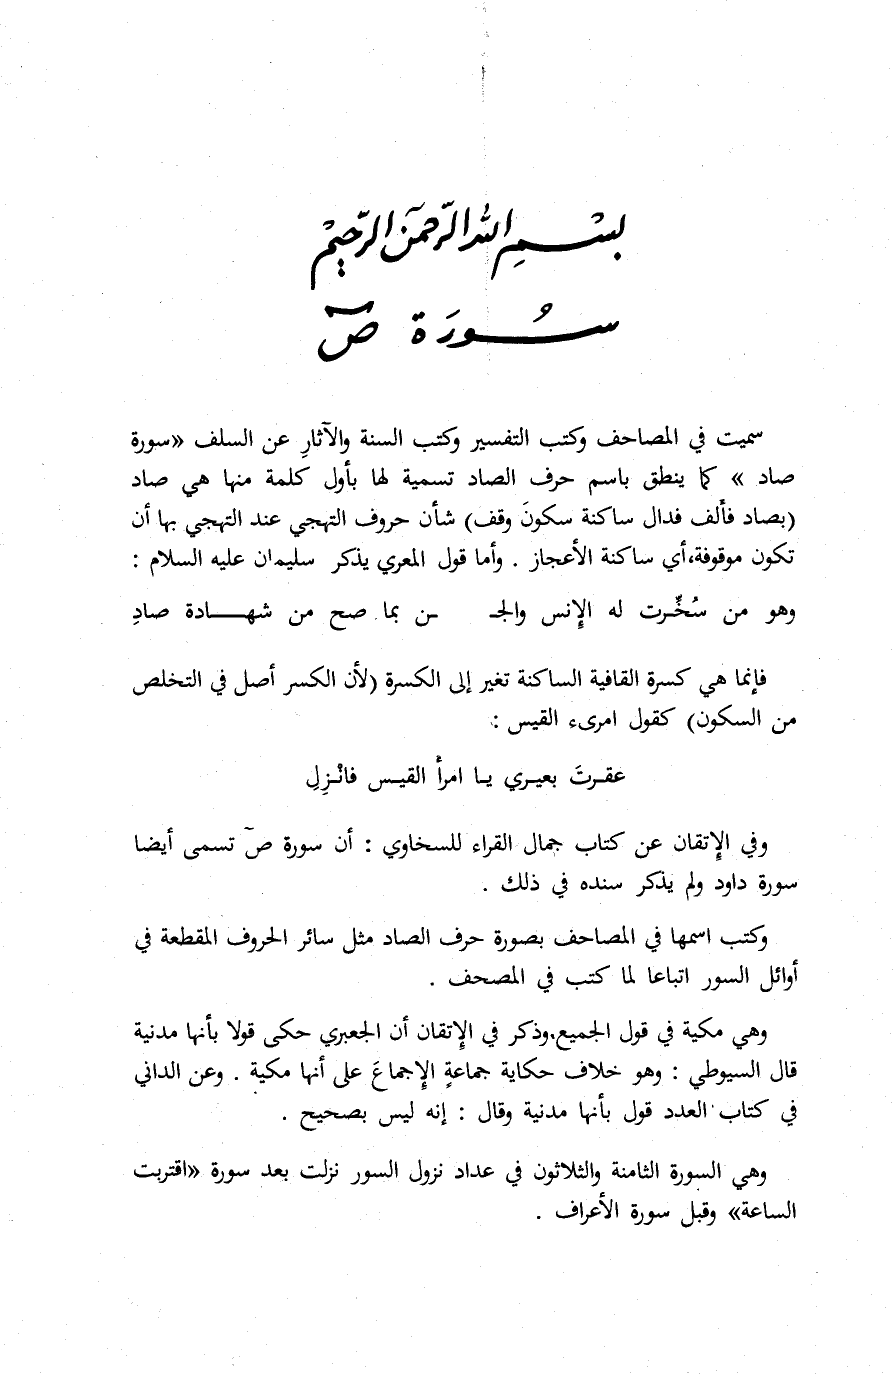 بِسْمِ اللّٰهِ الرَّحْمٰنِ الرَّحِيْمِ
سُورَة صۤ
سميت في المصاحف وكتب التفسير وكتب السنة والآثارِ عن السلف «سورة
صاد » كما ينطق باسم حرف الصاد تسمية لها بأول كلمة منها هي صاد
(بصاد فألف فدال ساكنة سكونَ وقف) شأن حروف التهجي عند التهجي بها أن
تكون موقوفة،أي ساكنة الأعجاز . وأما قول المعري يذكر سليمان عليه السلام :
وهو من سُخِّرت له الإنس والجـ ـن بما صح من شهـادة صادِ
فإنما هي كسرة القافية الساكنة تغير إلى الكسرة (لأن الكسر أصل في التخلص
من السكون) كقول امرىء القيس :
عقرتَ بعيري يا امرأ القيس فانْزِلِ
وفي الإتقان عن كتاب جمال القراء للسخاوي : أن سورة صۤ تسمى أيضا
سورة داود ولم يذكر سنده في ذلك .
وكتب اسمها في المصاحف بصورة حرف الصاد مثل سائر الحروف المقطعة في
أوائل السور اتباعا لما كتب في المصحف .
وهي مكية في قول الجميع،وذكر في الإتقان أن الجعبري حكى قولا بأنها مدنية
قال السيوطي : وهو خلاف حكاية جماعةٍ الإجماعَ على أنها مكية . وعن الداني
في كتاب العدد قول بأنها مدنية وقال : إنه ليس بصحيح .
وهي السورة الثامنة والثلاثون في عداد نزول السور نزلت بعد سورة «اقتربت
الساعة» وقبل سورة الأعراف .